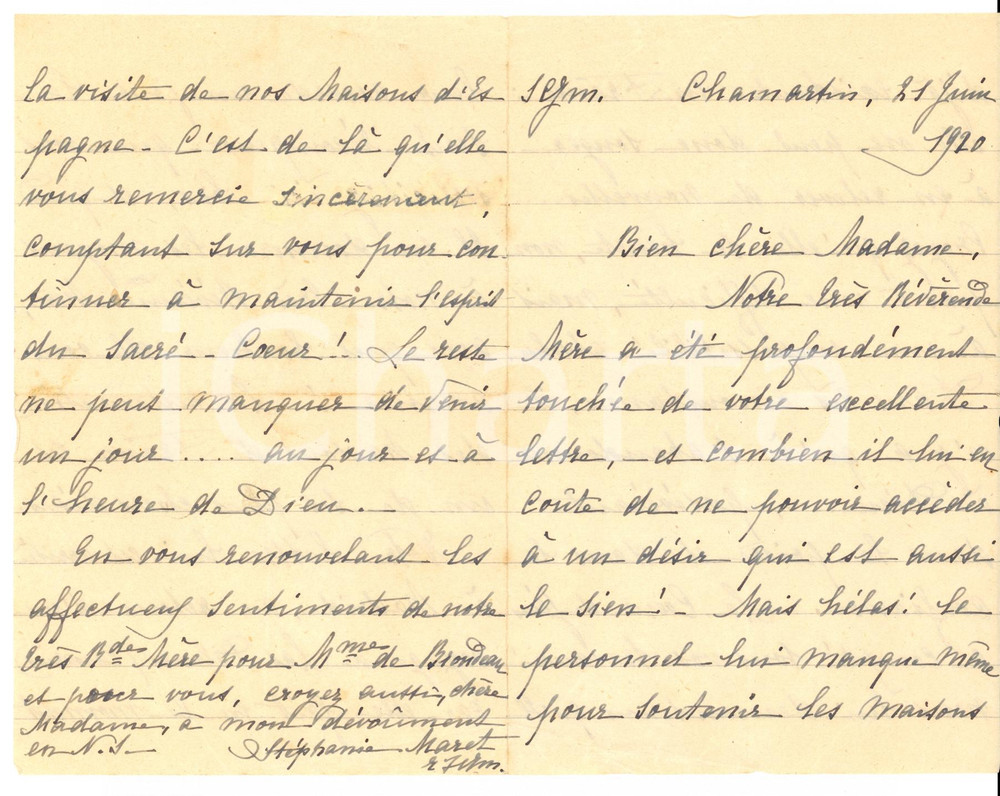 SCJM. Chamartin, 21 Juin
1920
Bien chère Madame,
Notre très Révérende
Mère a été profondément
touchée de votre excellente
lettre, et combien il lui en
coûte de ne pouvoir accéder
à un désir qui est aussi
le sien! - Mais hélas! le
personnel lui manque même
pour soutenir les maisons
la visite de nos Maisons d'Es
pagne - C'est de là qu'elle
vous remercie sincèrement,
comptant sur vous pour con-
tinuer à maintenir l'esprit
du Sacré - Cœur! - Le reste
ne peut manquer de venir
un jour .... au jour et à
l'heure de Dieu. -
En vous renouvelant les
affectueux sentiments de notre
très Rde Mère pour Mme de Brondeau
et pour vous, croyez aussi, chère
Madame, à mon dévoûment
en N.S. -
Stéphanie Maret
iCharta